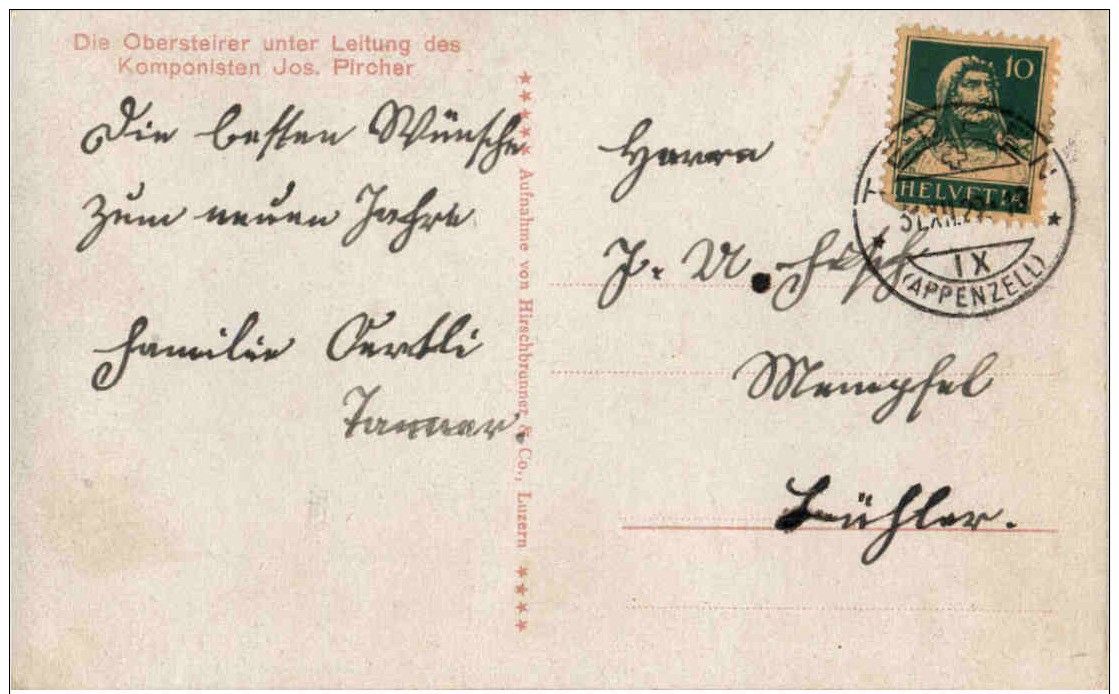 Die Obersteirer unter Leitung des
Komponisten Jos. Pircher
Die besten Wünsche
zum neuen Jahre
Familie Oertli
Tanner.
Aufnahme von Hirschbrunner & Co., Luzern
10
HELVETIA
31.XII.
IX
(APPENZELL)
Herrn
J. U.
Bühler.